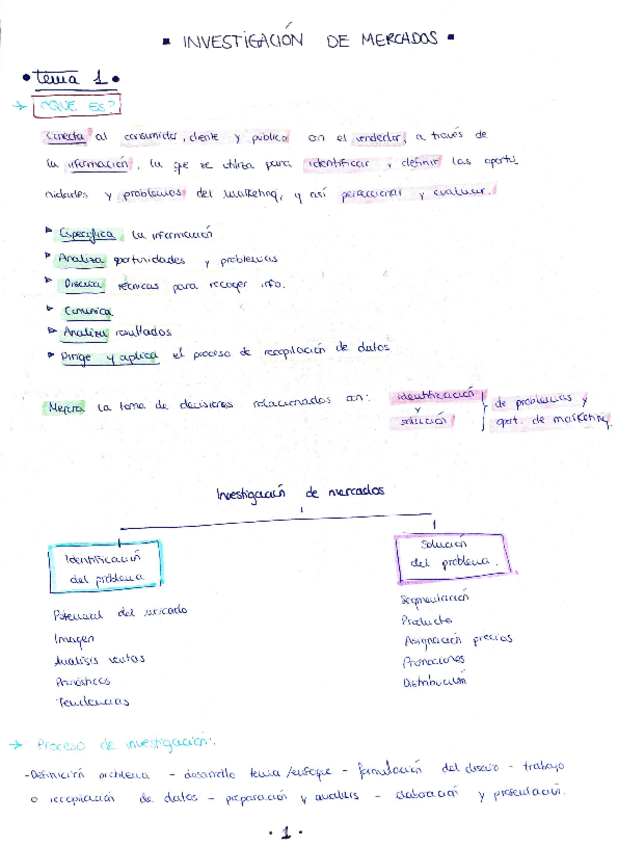 ▪ INVESTIGACIÓN DE MERCADOS ▪
• tema 1 •
→ ¿QUÉ ES?
Conecta al consumidor, cliente y público con el vendedor, a través de
la información, la que se utiliza para identificar y definir las oportu
nidades y problemas del marketing, y así perfeccionar y evaluar.
▸ Especifica la información
▸ Analiza oportunidades y problemas
▸ Diseña técnicas para recoger info.
▸ Comunica
▸ Analiza resultados
▸ Dirige y aplica el proceso de recopilación de datos
Mejora la toma de decisiones relacionados con: identificación y solución de problemas y oport. de marketing.
Investigación de mercados
Identificación del problema
Potencial del mercado
Imagen
Análisis ventas
Pronósticos
Tendencias
Solución del problema.
Segmentación
Producto
Asignación precios
Promociones
Distribución
→ Proceso de investigación:
-Definición problema - desarrollo tema/enfoque - formulación del diseño - trabajo
o recopilación de datos - preparación y analisis - elaboración y presentación.
• 1 •